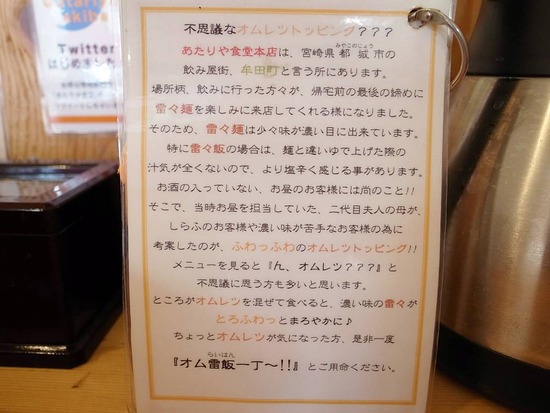 Akiba
Twitter
はじめました
不思議なオムレツトッピング???
あたりや食堂本店は、宮崎県都城市の
みやこのじょう
飲み屋街、牟田町と言う所にあります。
場所柄、飲みに行った方々が、帰宅前の最後の締めに
雷々麺を楽しみに来店してくれる様になりました。
そのため、雷々麺は少々味が濃い目に出来ています。
特に雷々飯の場合は、麺と違いゆで上げた際の
汁気が全くないので、より塩辛く感じる事があります。
お酒の入っていない、お昼のお客様には尚のこと!!
そこで、当時お昼を担当していた、二代目夫人の母が、
しらふのお客様や濃い味が苦手なお客様の為に
考案したのが、ふわっふわのオムレツトッピング!!
メニューを見ると『ん、オムレツ???』と
不思議に思う方も多いと思います。
ところがオムレツを混ぜて食べると、濃い味の雷々が
とろふわっとまろやかに♪
ちょっとオムレツが気になった方、是非一度
らいはん
『オム雷飯一丁〜!!』とご用命ください。